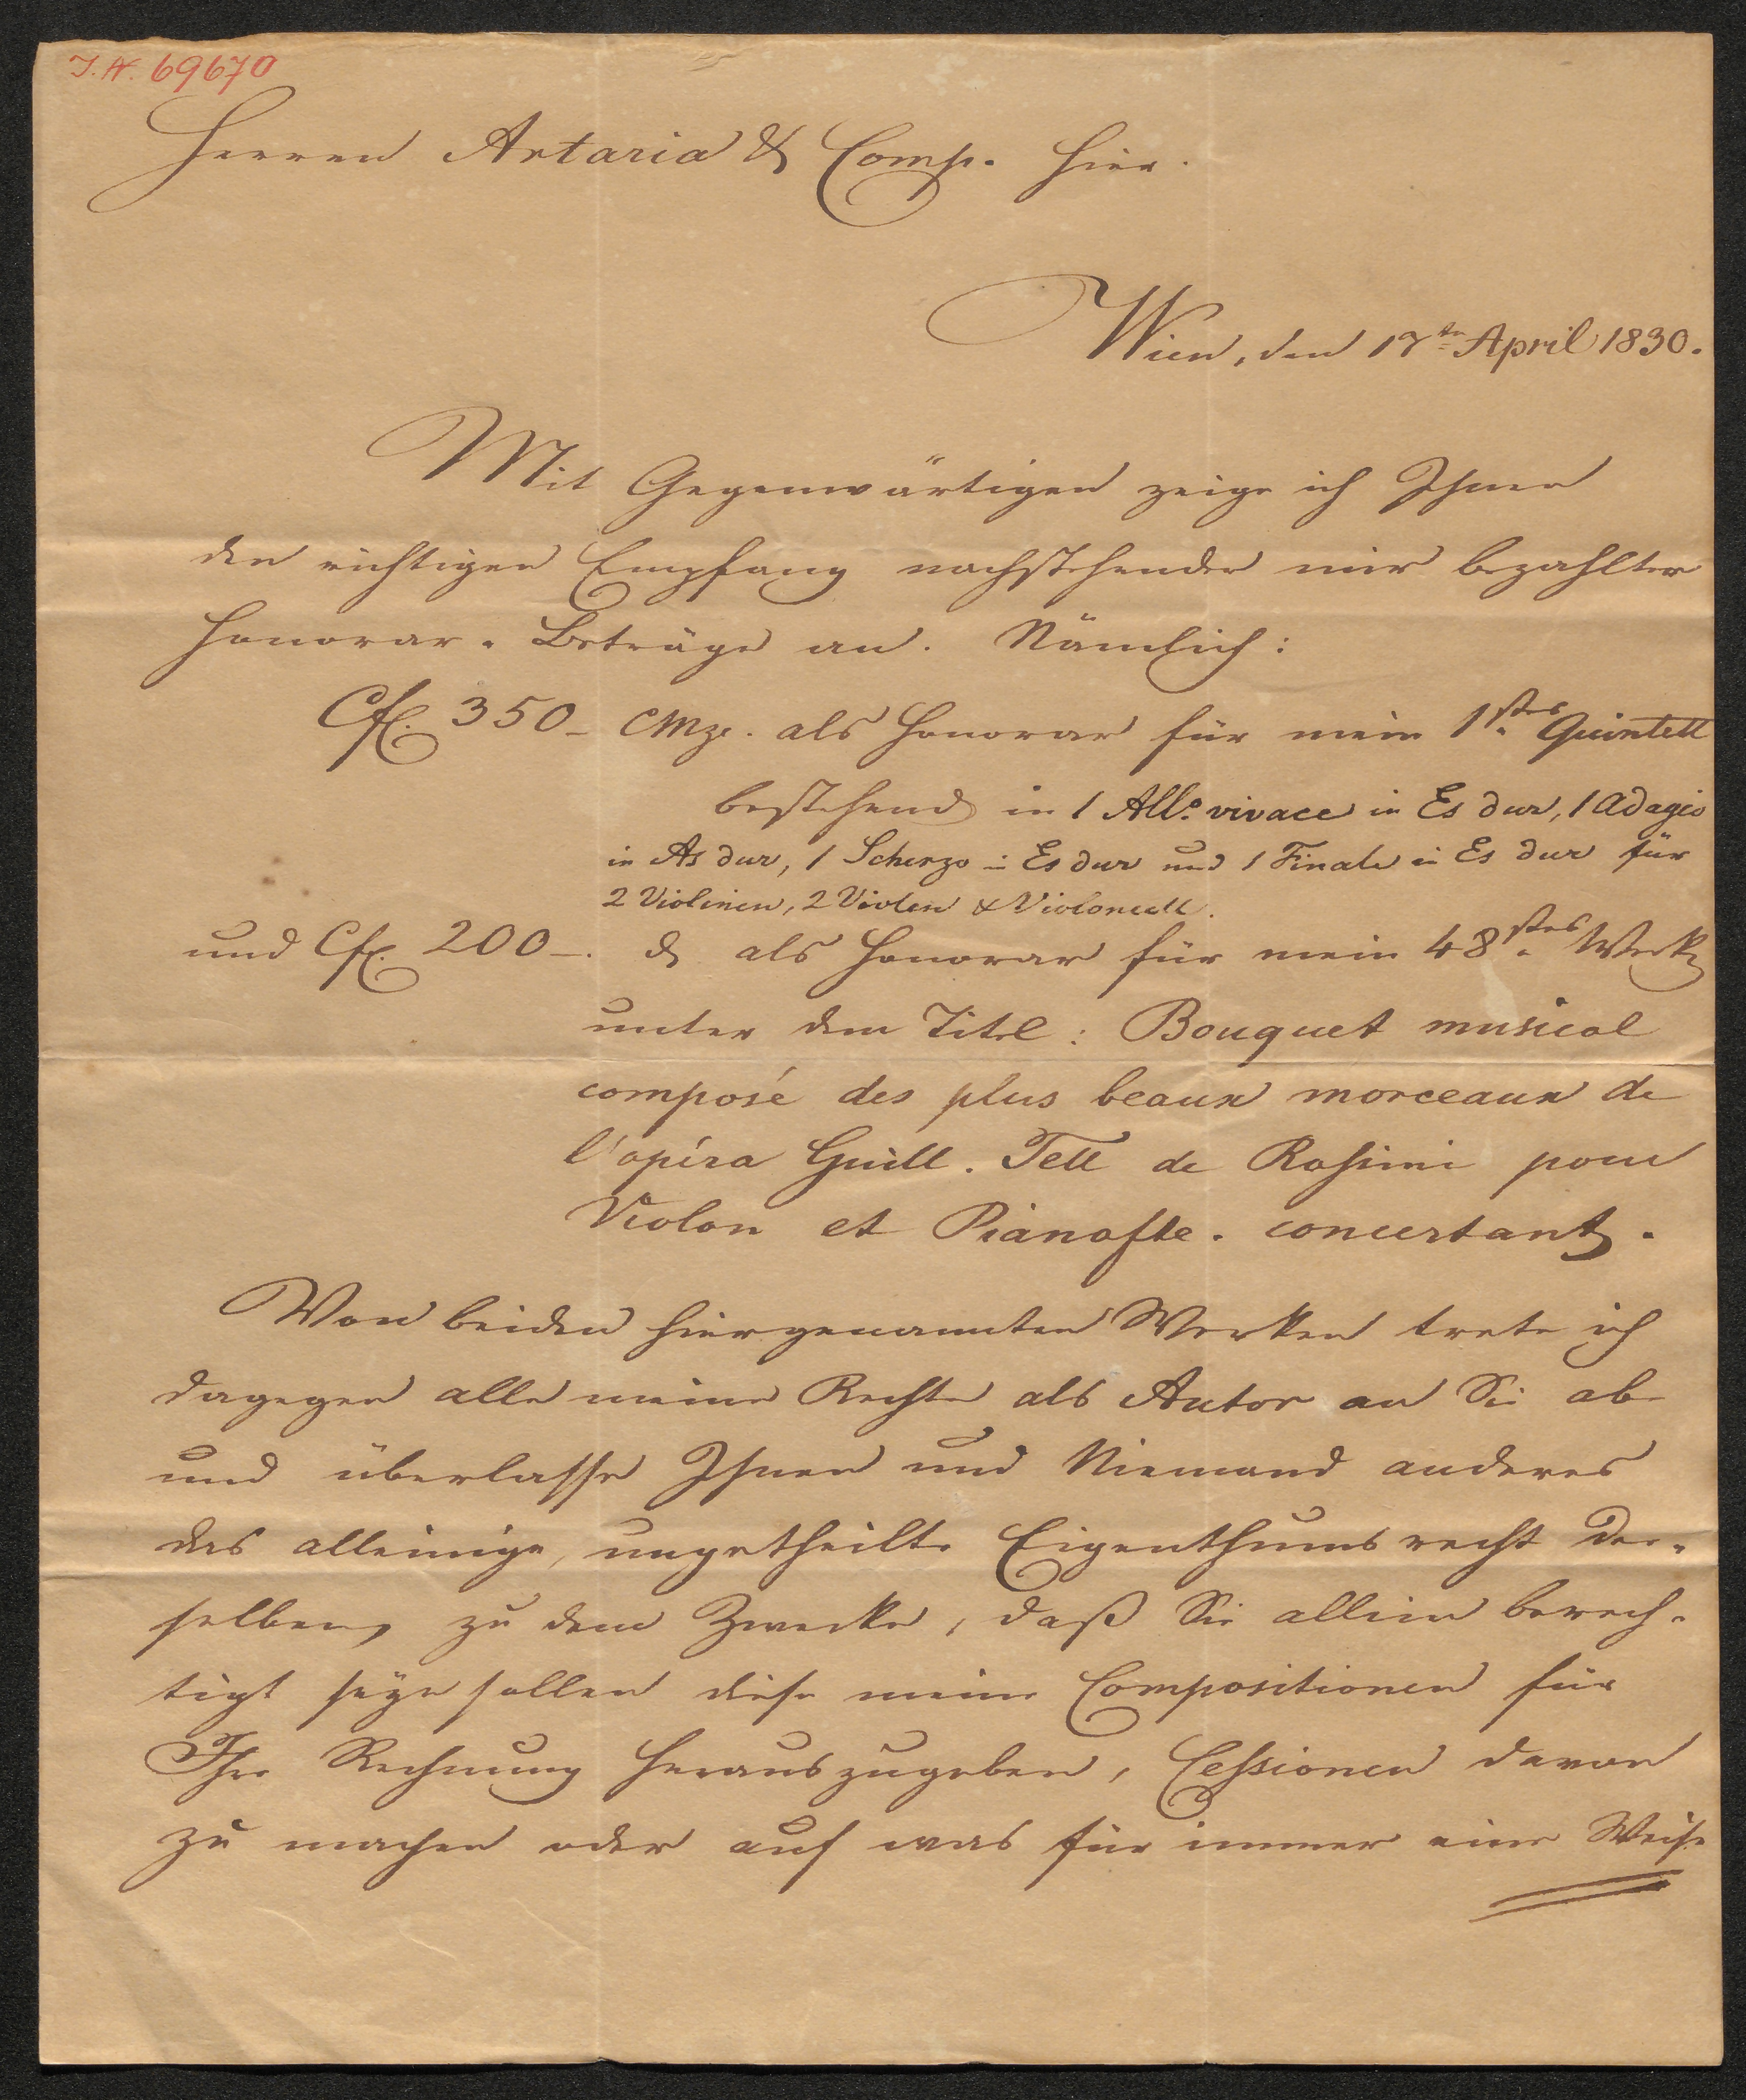 I.N. 69670
Herren Artaria & Comp. hier.
Wien, den 17ten April 1830.
Mit Gegenwärtigen zeige ich Ihnen
den richtigen Empfang nachstehender mir bezahlter
Honorar-Beträge an. Nämlich:
Cf. 350_ CMze. als Honorar für mein 1stes Quintett
bestehend in 1 Allo. vivace in Es dur, 1 Adagio
in As dur, 1 Scherzo in Es dur und 1 Finale in Es dur für
2 Violinen, 2 Violen & Violoncell.
und Cf. 200_. als Honorar für mein 48stes Werk
unter dem Titel: Bouquet musical
composé des plus beaux morceaux de
l'opéra Guill. Tell de Rossini pour
Violon et Pianofte. concertant.
Von beiden hiergenannten Werken trete ich
dagegen alle meine Rechte als Autor an Sie ab
und überlasse Ihnen und Niemand anderes
das alleinige, ungetheilte Eigenthumsrecht der-
selben, zu dem Zwecke, daß Sie allein berech-
tigt seyn sollen diese meine Compositionen für
Ihre Rechnung herauszugeben, Cessionen davon
zu machen oder auf was für immer eine Weise